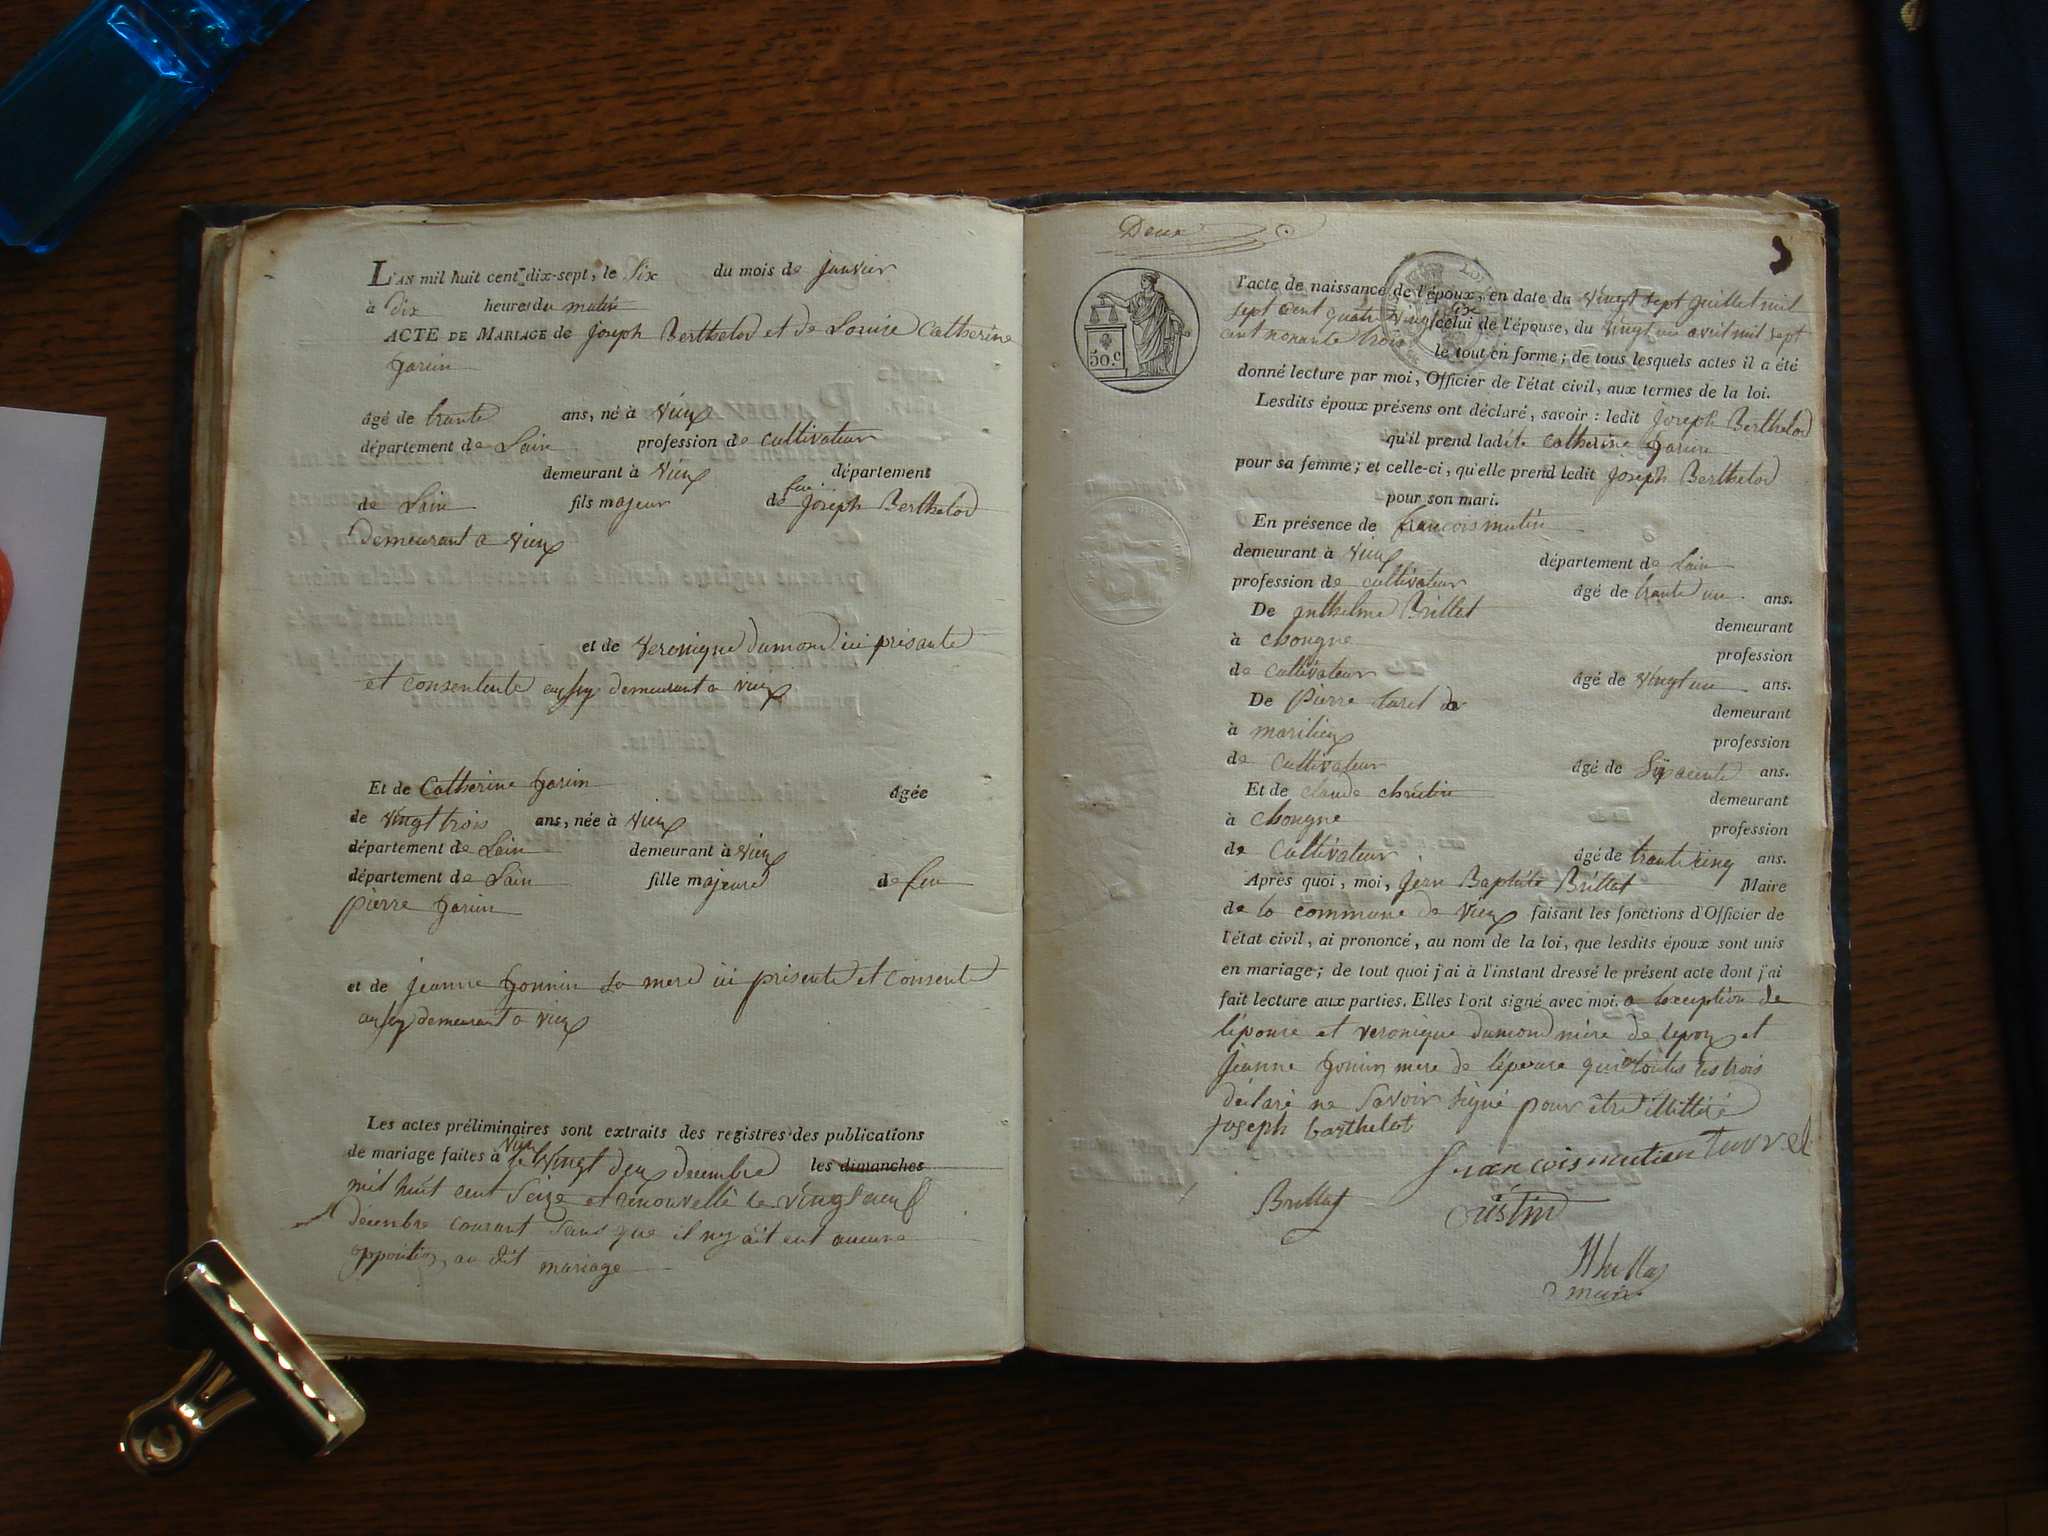 L'AN mil huit cent dix-sept, le Six du mois de janvier
à dix heures du matin
ACTE DE MARIAGE de joseph Berthelod et de Louise Catherine
garin
âgé de trante ans, né à Vieux
département de Lain profession de cultivateur
demeurant à Vieux département
de Lain fils majeur de feu joseph Berthelod
demeurant a Vieux
et de Veronique dumond ici présante
et consentente demeurant a vieux
Et de Catherine garin âgée
de vingt trois ans, née à Vieux
département de Lain demeurant à Vieux
département de Lain fille majeure de feu
pierre garin
et de jeanne gonnin sa mere ici présente et consente
demeurant a vieux
Les actes préliminaires sont extraits des registres des publications
de mariage faites à Vieux le Vingt deux decembre les dimanches
mil huit cent Seize et renouvellé le vingt neuf
décembre courant sans que il ny ait eut aucune
opposition au dit mariage
Deux
50.c
l'acte de naissance de l'époux, en date du vingt sept juillet mil
sept cent quatre vingt six celui de l'épouse, du vingt un avril mil sept
cent nonante trois le tout en forme; de tous lesquels actes il a été
donné lecture par moi, Officier de l'état civil, aux termes de la loi.
Lesdits époux présens ont déclaré, savoir: ledit joseph Berthelod
qu'il prend ladite catherine garin
pour sa femme; et celle-ci, qu'elle prend ledit joseph Berthelod
pour son mari.
En présence de francois mutin
demeurant à Vieux département de Lain
profession de cultivateur âgé de trante un ans.
De anthelme Brillat demeurant
à chongne profession
de cultivateur âgé de vingt un ans.
De pierre demeurant
à marilieux profession
de cultivateur âgé de ans.
Et de claude chrétin demeurant
à chongne profession
de cultivateur âgé de trante cinq ans.
Après quoi, moi, jean Baptiste Brillat Maire
de la commune de Vieux faisant les fonctions d'Officier de
l'état civil, ai prononcé, au nom de la loi, que lesdits époux sont unis
en mariage; de tout quoi j'ai à l'instant dressé le présent acte dont j'ai
fait lecture aux parties. Elles l'ont signé avec moi. a lexception de
lépouse et veronique dumond mère de lepoux et
jeanne gonin mere de lépouse qui toutes les trois
déclaré ne savoir signé pour être illittéré
joseph barthelot
francois mutien
Brillat
maire